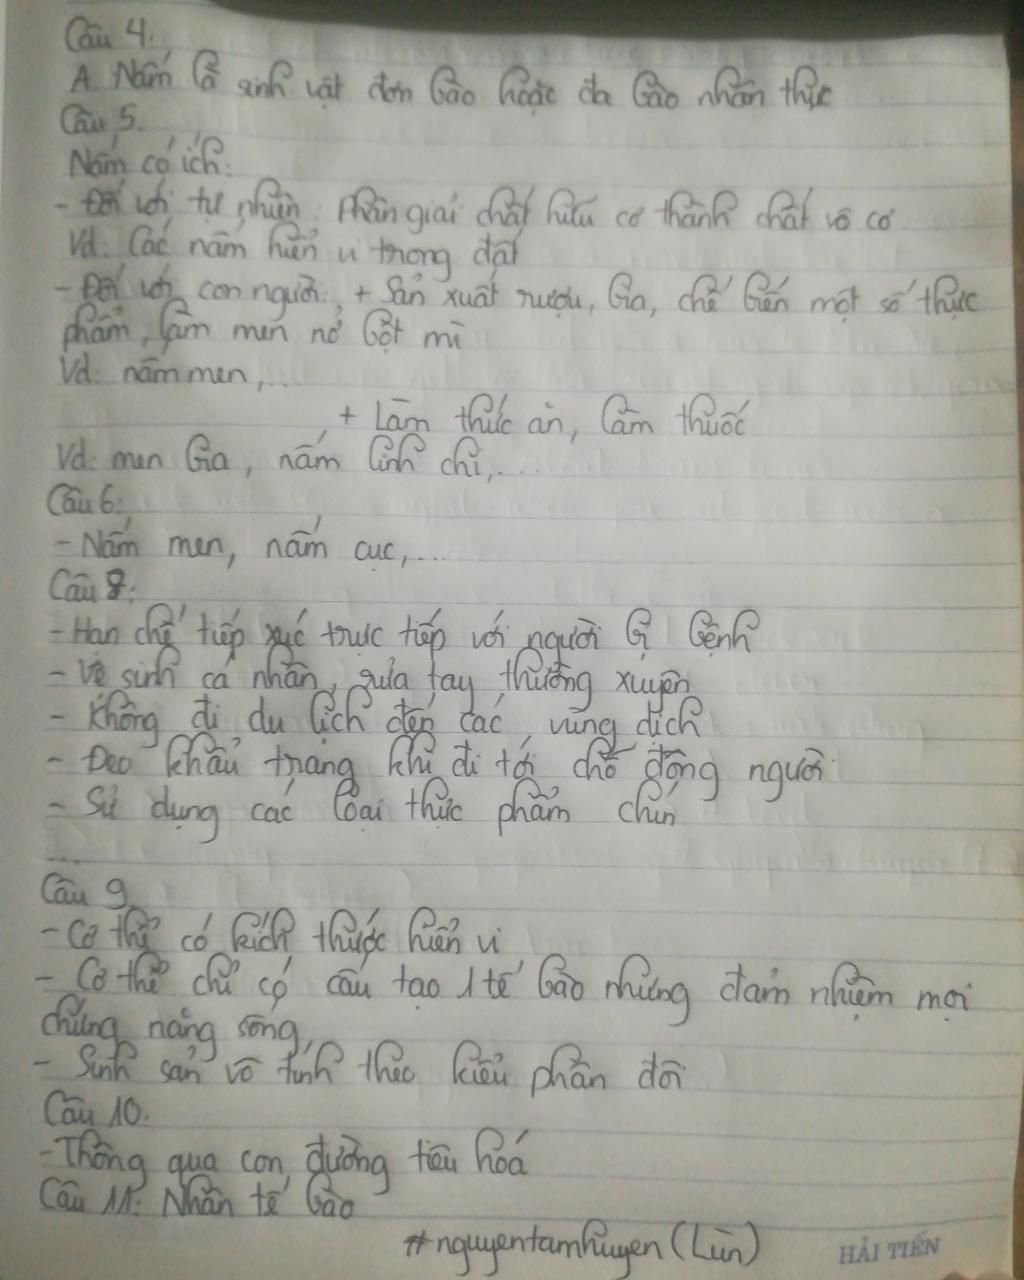 Câu 4:
A. Nấm là sinh vật đơn bào hoặc đa bào nhân thực
Câu 5.
Nấm có ích:
- Đối với tự nhiên: Phân giải chất hữu cơ thành chất vô cơ
Vd: Các nấm hiển vi trong đất
- Đối với con người: + Sản xuất rượu, bia, chế biến một số thực
phẩm, làm men nở bột mì
Vd: nấm men,...
+ Làm thức ăn, làm thuốc
Vd: men bia, nấm linh chi,...
Câu 6:
- Nấm men, nấm cục,...
Câu 8:
- Hạn chế tiếp xúc trực tiếp với người bị bệnh
- Vệ sinh cá nhân, rửa tay thường xuyên
- Không đi du lịch đến các vùng dịch
- Đeo khẩu trang khi đi tới chỗ đông người
- Sử dụng các loại thực phẩm chín
...
Câu 9
- Cơ thể có kích thước hiển vi
- Cơ thể chỉ có cấu tạo 1 tế bào nhưng đảm nhiệm mọi
chức năng sống
- Sinh sản vô tính theo kiểu phân đôi
Câu 10.
- Thông qua con đường tiêu hóa
Câu 11: Nhân tế bào
#nguyentamhuyen (Lùn)
HẢI TIẾN